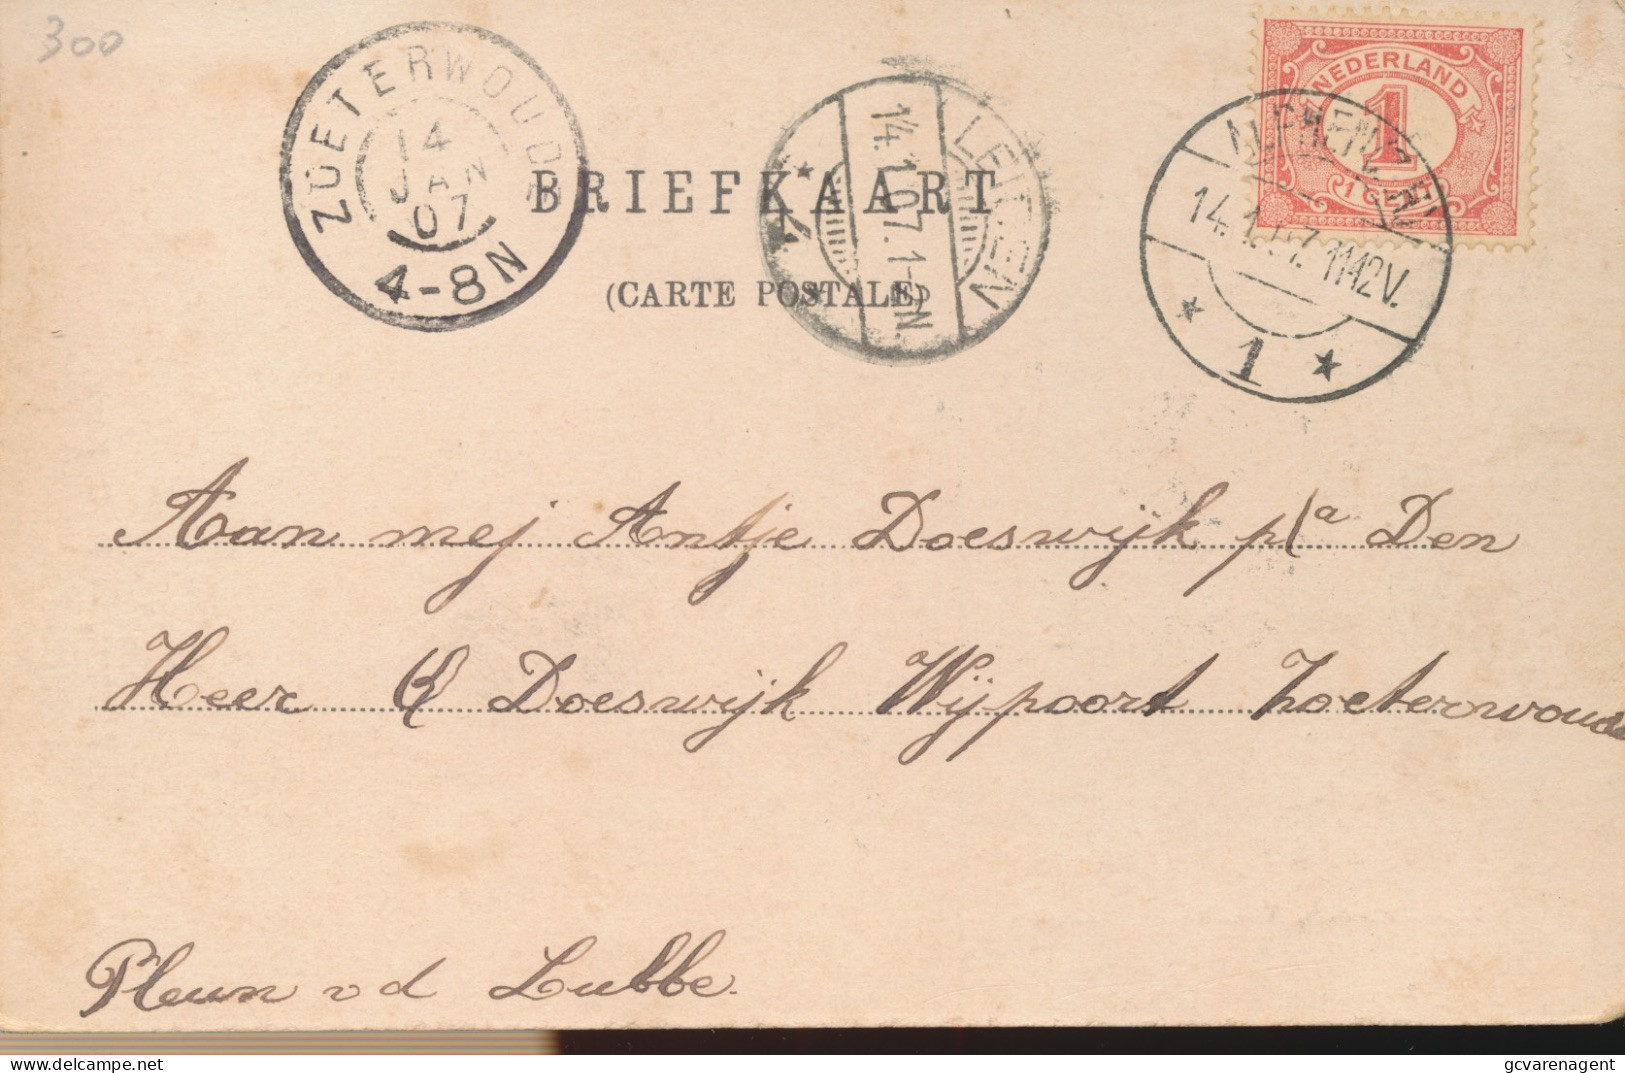 300
ZOETERWOUDE
14
JAN
07
4-8N
BRIEFKAART
(CARTE POSTALE)
LEIDEN
14.1.07.1-2N.
NEDERLAND
1
1 CENT
14.1.07.11-12V.
1
Aan mej Antje Doeswijk p/a Den
Heer Doeswijk Wijpoort Zoeterwoude
Pleun v d Lubbe.
gcvarenagent